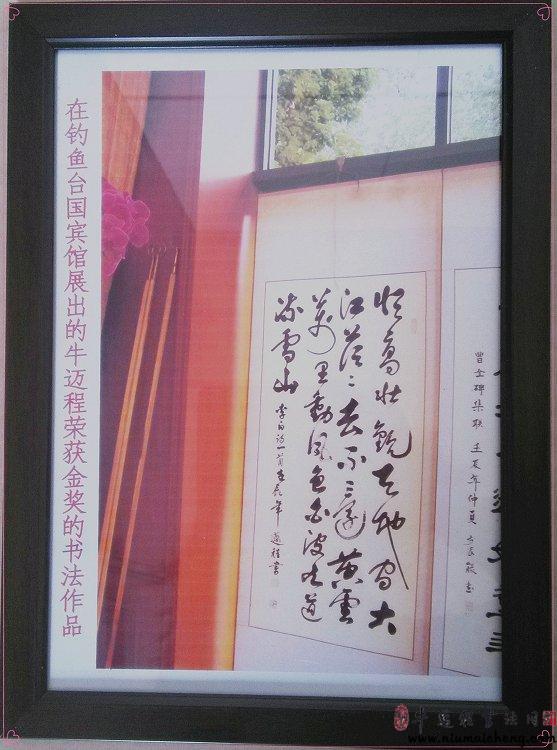 在钓鱼台国宾馆展出的牛迈程荣获金奖的书法作品
登高壮觀天地间大
江茫〻去不還黄雲
萬里動風色白波九道
流雪山
李白詩一首壬辰年迈程書
曹全碑集联 壬辰年仲夏
牛迈程書法网
www.niumaicheng.com